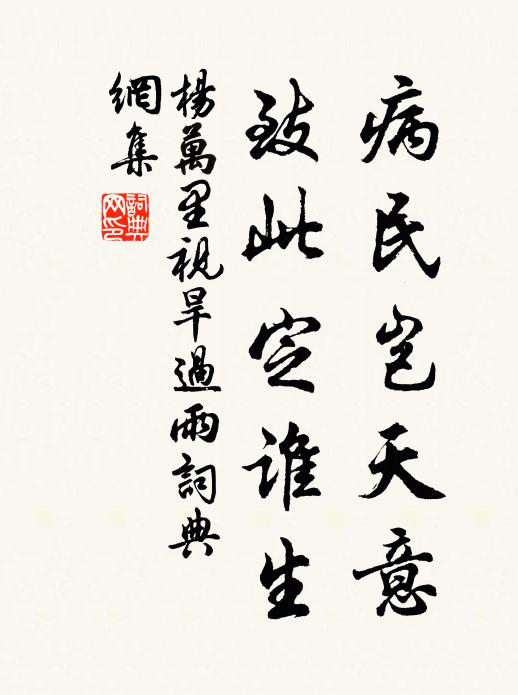 病民岂天意
致此定谁生
楊萬里視旱過雨詞典
網集
詞典
网印